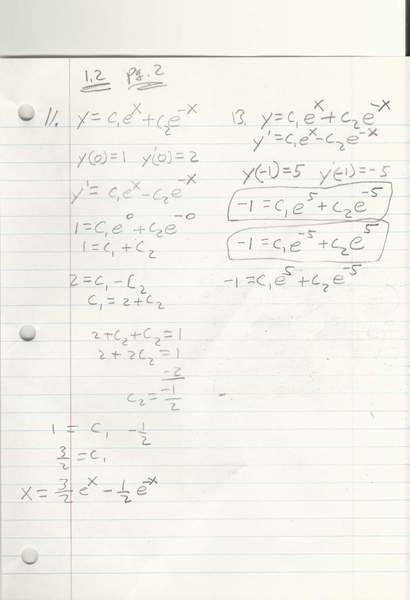 1.2 pg. 2
11. y = c₁eˣ + c₂e⁻ˣ
y(0) = 1 y'(0) = 2
y' = c₁eˣ - c₂e⁻ˣ
1 = c₁e⁰ + c₂e⁻⁰
1 = c₁ + c₂
2 = c₁ - c₂
c₁ = 2 + c₂
2 + c₂ + c₂ = 1
2 + 2c₂ = 1
-2
c₂ = -1/2
1 = c₁ - 1/2
3/2 = c₁
x = 3/2 eˣ - 1/2 e⁻ˣ
13. y = c₁eˣ + c₂e⁻ˣ
y' = c₁eˣ - c₂e⁻ˣ
y(-1) = 5 y'(-1) = -5
-1 = c₁e⁵ + c₂e⁻⁵
-1 = c₁e⁻⁵ + c₂e⁵
-1 = c₁e⁵ + c₂e⁻⁵